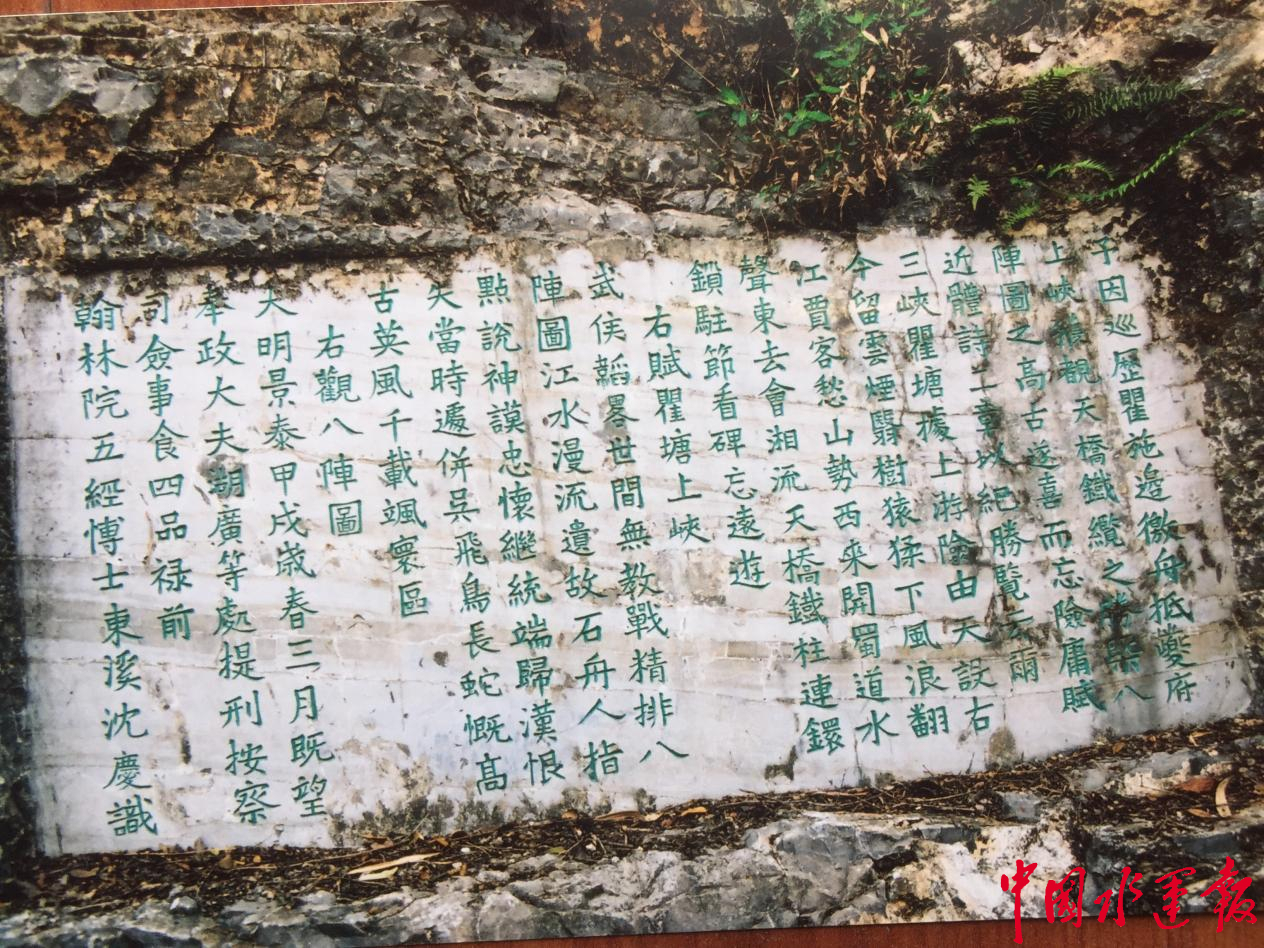 子因巡歷瞿施邊徼舟抵夔府
上峽獲覩天橋鐵纜之勝槩八
陣圖之高古遂喜而忘險庸賦
近體詩二章以紀勝覽云爾
三峽瞿塘據上游險由天設右
今留雲煙翳樹猿猱下風浪翻
江賈客愁山勢西来開蜀道水
聲東去會湘流天橋鐵柱連鐶
鎖駐節看碑忘遠遊
右賦瞿塘上峽
武侯韜畧世間無教戰精排八
陣圖江水漫流遺故石舟人指
點說神謨忠懷継統端歸漢恨
失當時遽併吳飛鳥長蛇慨高
古英風千載颯寰區
右觀八陣圖
大明景泰甲戌歲春三月既望
奉政大夫胡廣等處提刑按察
司僉事食四品禄前
翰林院五經愽士東溪沈慶識
中国水运报